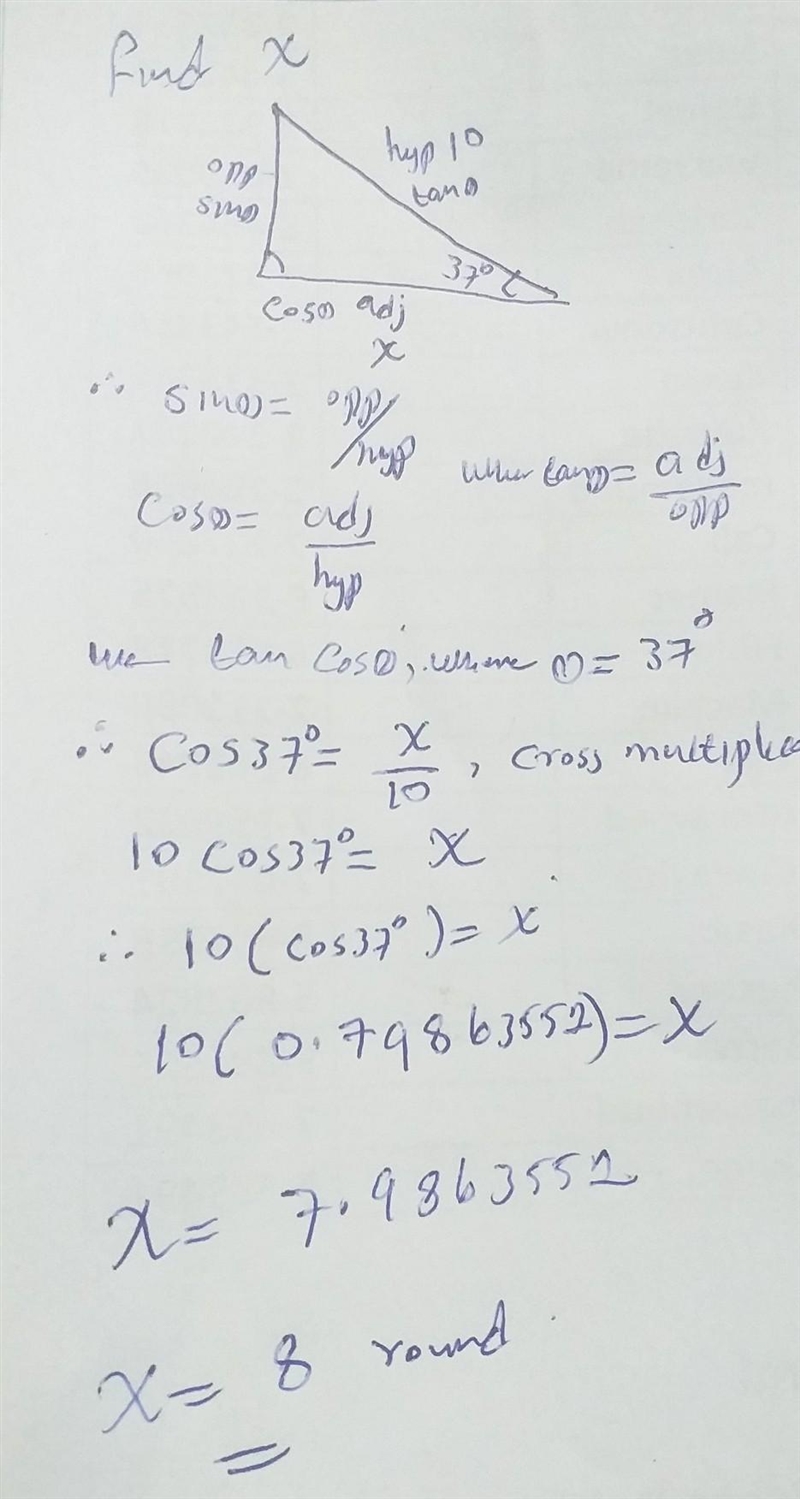 Find x
hyp 10
opp
tanθ
sinθ
37°
Cosθ adj
x
∴ sinθ = opp/hyp
when tanθ = adj/opp
Cosθ = adj/hyp
we tan Cosθ, where θ = 37°
∴ Cos37° = x/10, cross multiplied
10 Cos37° = x
∴ 10(cos37°) = x
10(0.79863551) = x
x = 7.9863551
x = 8 round